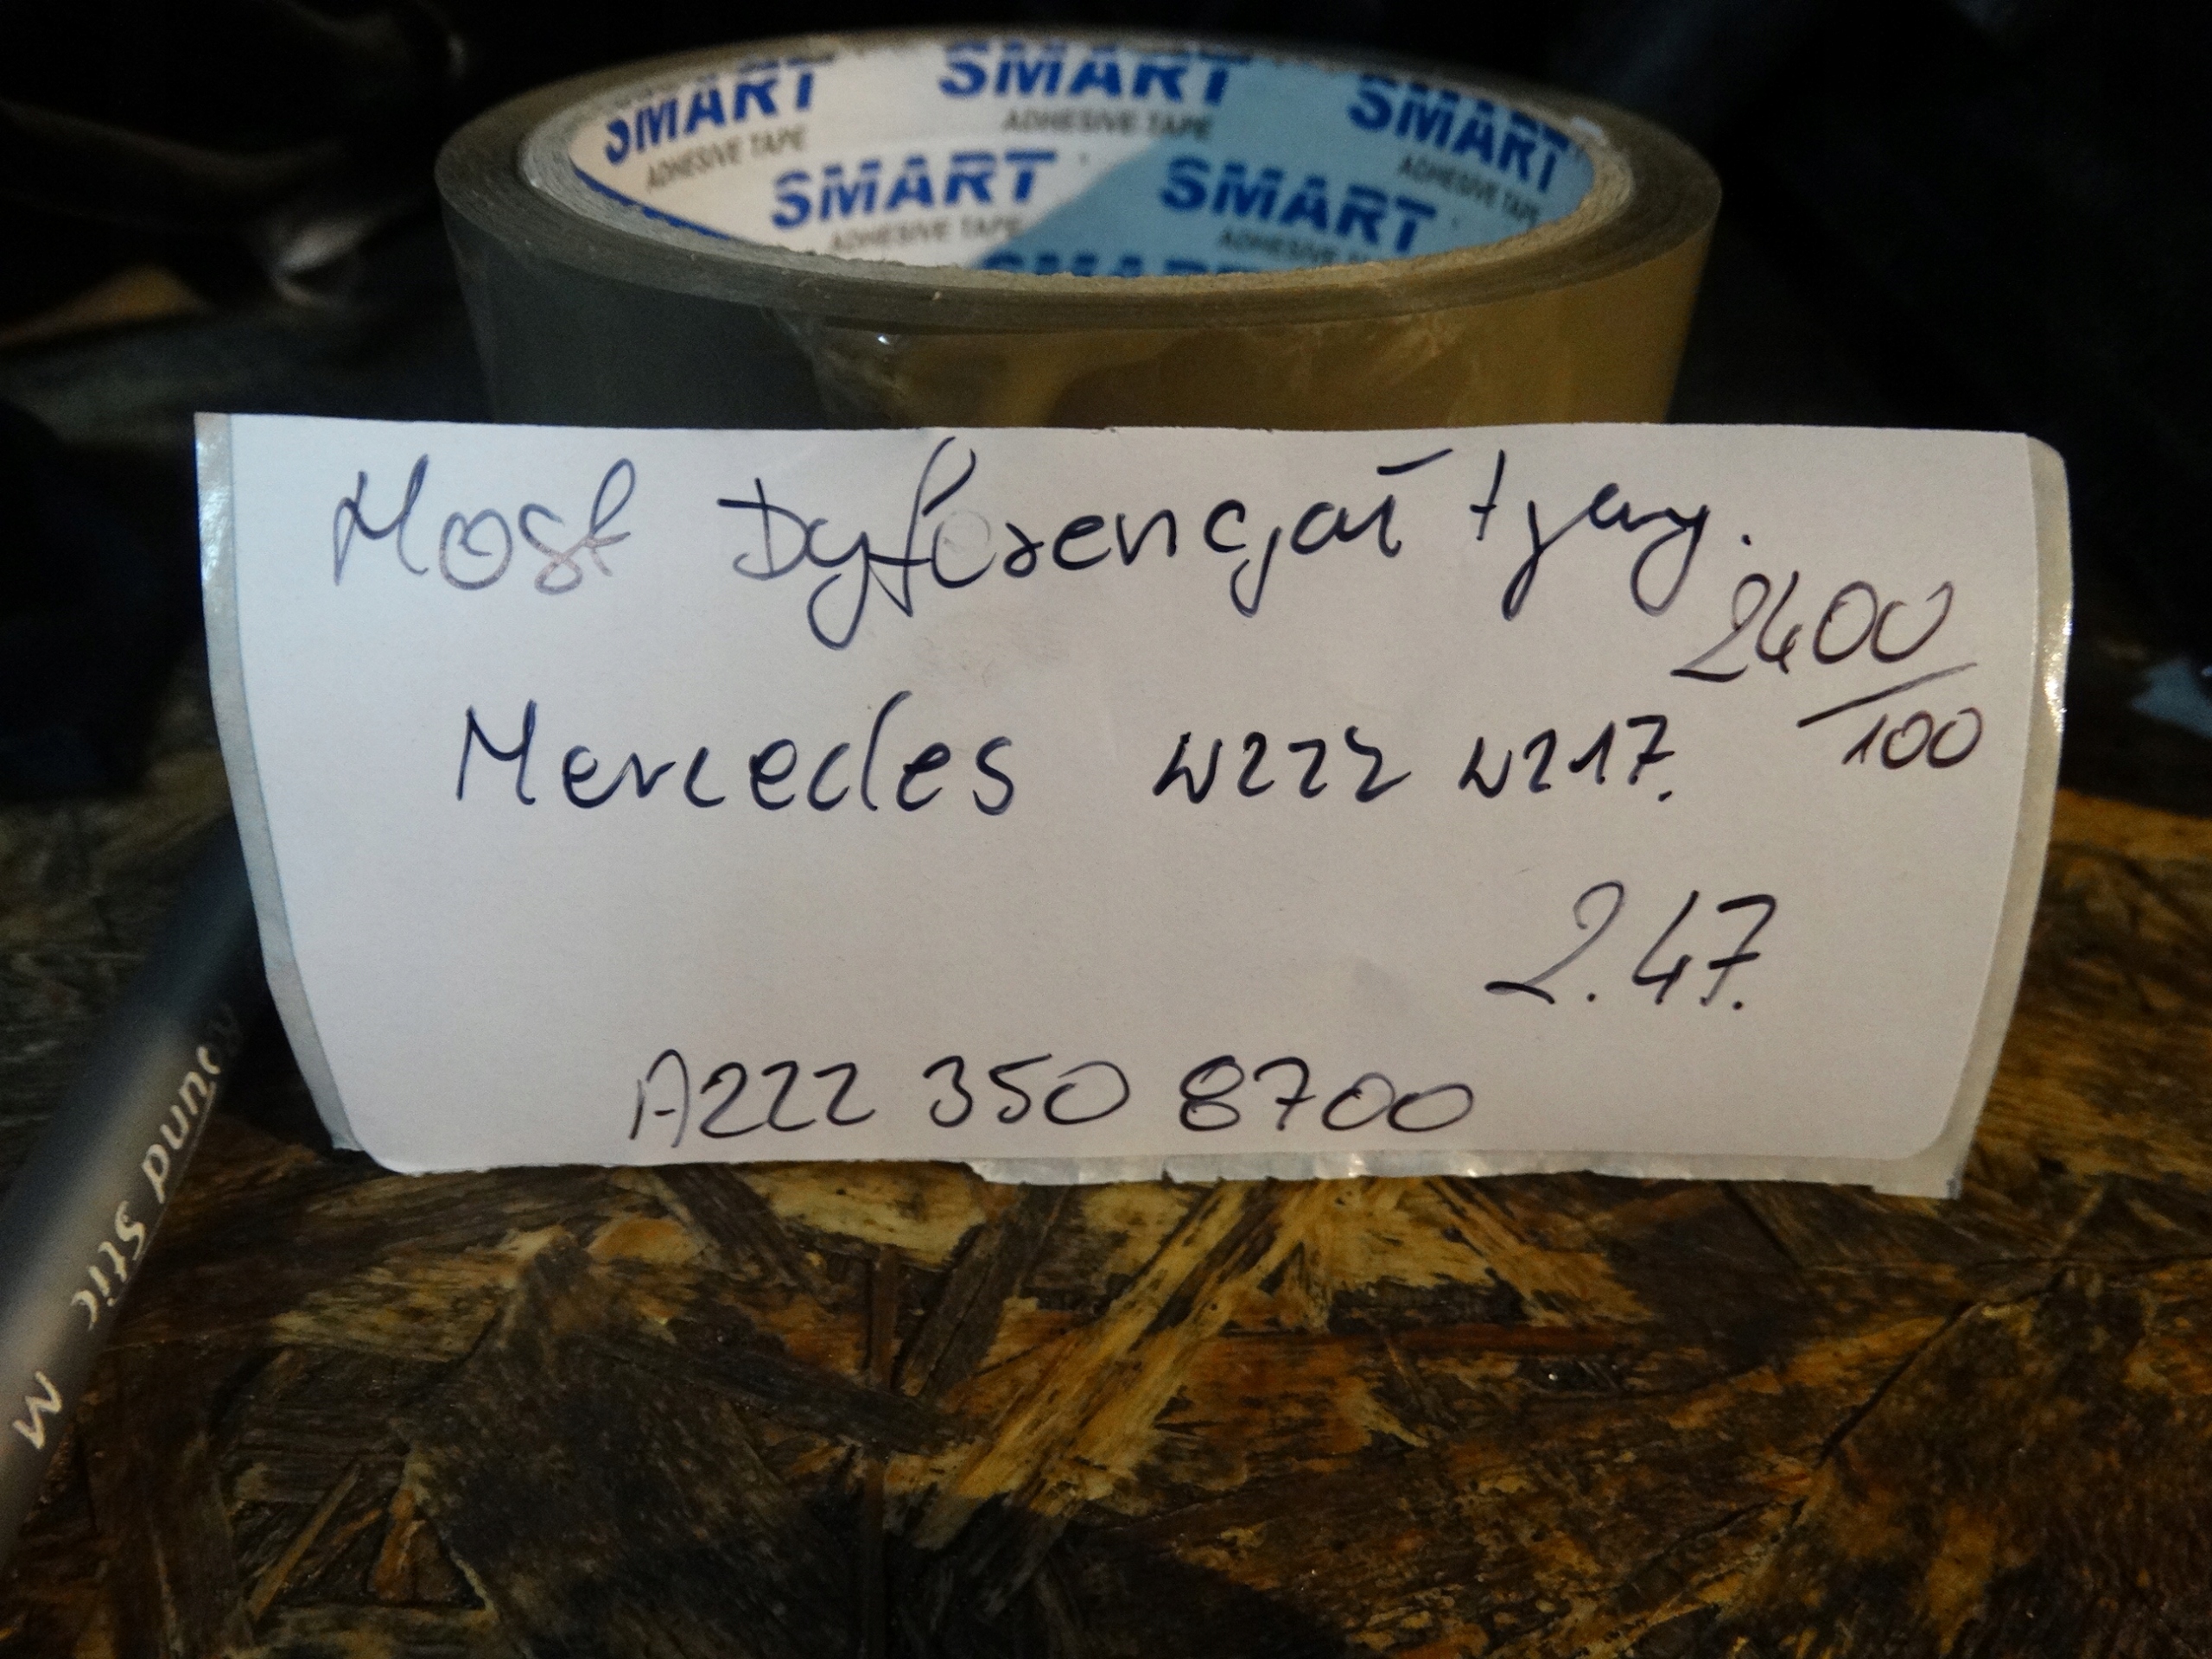 SMART SMART SMART
ADHESIVE TAPE ADHESIVE TAPE ADHESIVE TAPE
SMART SMART
ADHESIVE TAPE ADHESIVE
SMART
Most Dyferencjał tylny.
2400/100
Mercedes W222 W217.
2.47.
A222 350 8700
M Stic